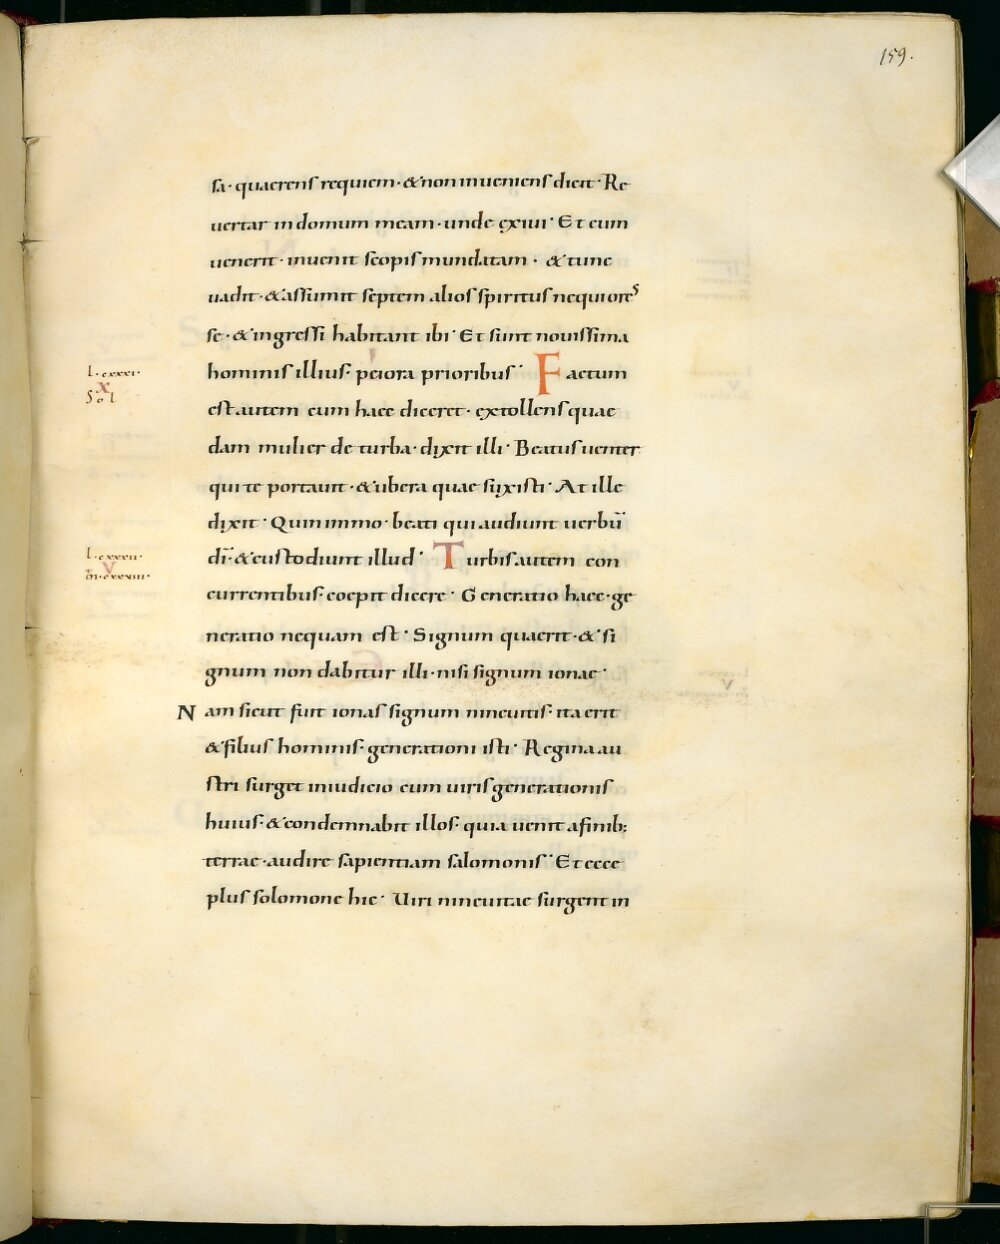 159.
sa· quaerens requiem· & non inueniens dicit· Re
uertar in domum meam· unde exiui· Et cum
uenerit· inuenit scopis mundatam· & tunc
uadit· & assumit septem alios spiritus nequiores
se· & ingressi habitant ibi· Et sunt nouissima
hominis illius· peiora prioribus· Factum
l· cxxxi·
X
Sol
est autem cum haec diceret· extollens quae
dam mulier de turba· dixit illi· Beatus uenter
qui te portauit· & ubera quae suxisti· At ille
dixit· Quin immo· beati qui audiunt uerbū
dī· & custodiunt illud· Turbis autem con
l· cxxxii·
V
m· cxxviii·
currentibus· coepit dicere· Generatio haec· ge
neratio nequam est· Signum quaerit· & si
gnum non dabitur illi· nisi signum ionae·
Nam sicut fuit ionas signum nineuitis· ita erit
& filius hominis· generationi isti· Regina au
stri surget in iudicio cum uiris generationis
huius· & condemnabit illos· quia uenit a finib;
terrae· audire sapientiam salomonis· Et ecce
plus solomone hic· Uiri nineuitae surgent in